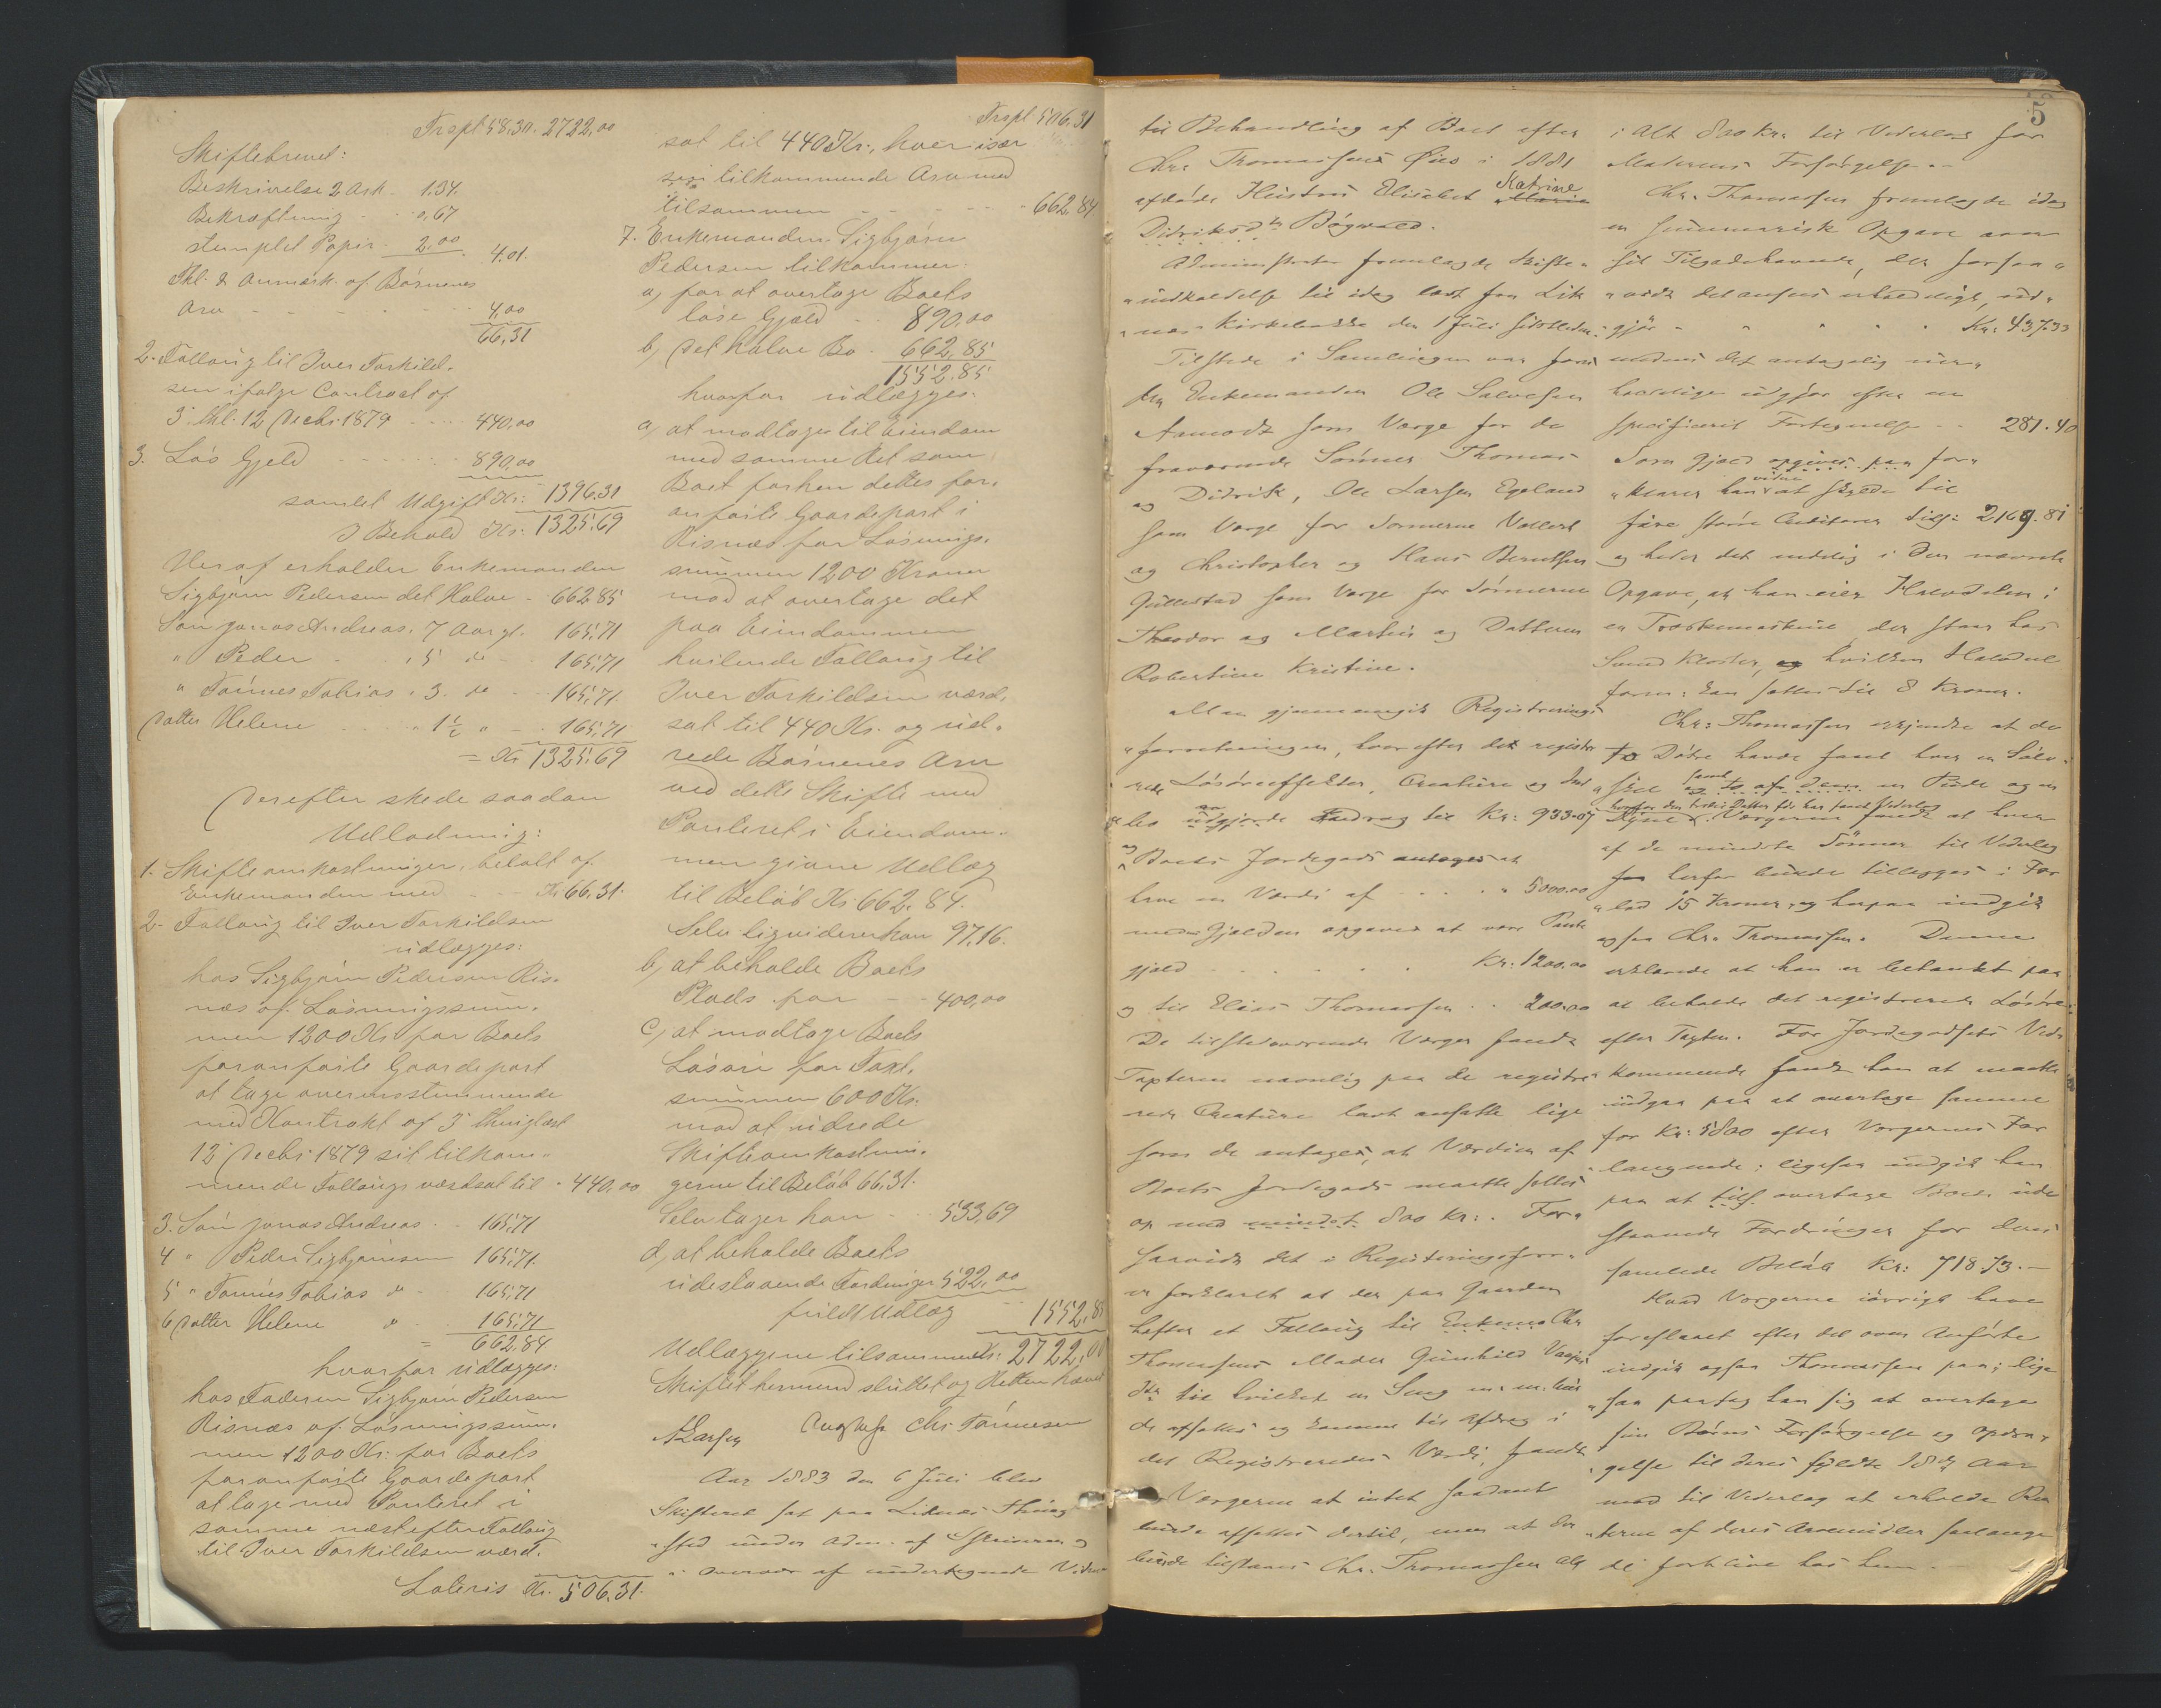 Trspt 58.30. 2722,00
Skiftebrevet:
Beskrivelse 2 Ark - 1.34.
Bekræftning - - 0,67
stemplet Papir - 2.00 4.01.
Thl. & Anmærk. af Børnenes
Arv - - - - - 4,00
66,31
2. Føllaug til Iver Torkild-
sen ifølge Contract af
3. thl. 12 Decbr. 1879 - - - 440,00
3. Løs Gjeld - - - - 890,00
samlet Udgift Kr: 1396.31
I Behold Kr: 1325,69
Heraf erholder Enkemanden
Sigbjørn Pedersen det Halve - 662,85
Søn Jonas Andreas, 7 Aar gl. 165,71
" Peder - - " 5 do - - 165,71
" Tønnes Tobias " 3. do - - 165,71
Datter Helene - - - " 1½ " - - 165,71
= Kr 1325,69
Derefter skede saadan
Udlodning:
1. Skifteomkostninger, betalt af
Enkemanden med - - Kr 66,31.
2. Føllaug til Iver Torkildsen
udlægges:
hos Sigbjørn Pedersen Ris-
næs af Løsningssum-
men 1200 Kr for Boets
foranførte Gaardepart
at tage overensstemmende
med Kontrakt af 3 thinglæst
12 Decbr 1879 sit tilkom-
mende Føllaug værdsat til - 440,00
3. Søn Jonas Andreas - - 165,71
4 " Peder Sigbjørnsen 165,71.
5 " Tønnes Tobias do - 165,71
6 Datter Helene do - 165,71
= 662,84
hvorfor udlægges:
hos Faderen Sigbjørn Pedersen
Risnæs af Løsningssum-
men 1200 Kr: for Boets
foranførte Gaardepart
at tage med Panteret i
samme næstefter Føllaug
til Iver Torkildsen værd-
Lateris Kr. 506.31.
Trspt 506,31
sat til 440 Kr., hver især
sin tilkommende Arv med
tilsammen - - - - - 662,84
7. Enkemanden Sigbjørn
Pedersen tilkommer:
a, for at overtage Boets
løse Gjæld - 890,00
b, det halve Bo - 662,85
1552.85
hvorfor udlægges:
a, at modtage til Eiendom
med samme Ret som
Boet forhen dettes for-
anførte Gaardepart i
Risnæs for Løsnings-
summen 1200 Kroner
mod at overtage det
paa Eiendommen
hvilende Føllaug til
Iver Torkildsen værd-
sat til 440 Kr. og ud-
rede Børnenes Arv
ved dette Skifte med
Panteret i Eiendom-
men givne Udlæg
til Beløb Kr 662,84.
Selv liqviderer han 97,16.
b, at beholde Boets
Plads for - - 400,00
c, at modtage Boets
Løsøre for Taxt-
summen 600 Kr.
mod at udrede
Skifteomkostnin-
gerne til Beløb 66,31.
Selv tager han - - 533,69
d, at beholde Boets
udestaaende Fordringer 522,00
fuldt Udlæg - 1552,85
Udlæggene tilsammen Kr: 2722,00
Skiftet hermed sluttet og Retten hævet
Chr Tønnesen
Aar 1883 den 6 Juli blev
Skifteret sat paa Liknes Thing-
sted under Adm. af
Overvær af undertegnede Vidner
5
til Behandling af Boet efter
Chr. Thomassens Øies i 1881
afdøde Hustru Elisabet Katrine
Didriksdtr Bøgwald.
Administrator fremlagde Skifte-
indkaldelse til idag læst fra Lik-
nes Kirkebakke den 1 Juli sidstleden.
Tilstede i Samlingen var foru-
den Enkemanden Ole Salvesen
Aamodt som Værge for de
fraværende Sønner Thomas
og Didrik, Ole Larsen Egeland
som Værge for Sønnerne Vollert
og Christopher og Hans Berntsen
Gullestad som Værge for Sønnerne
Theodor og Martin og Datteren
Robertine Kristine.
Man gjennemgik Registrerings-
forretningen, hvorefter det registre-
rede Løsøreeffekter, Creature og
Kr: 933.07
og Boets Jordegods antages at
have en Værdi af - - - " 5000.00
medens Gjælden opgaves at være Pante-
gjæld - - - - Kr: 1200.00
og til Elias Thomassen - - 200.00
De tilstedeværende Værger fandt
Taxterne navnlig paa de registre-
rede Creature lavt ansatte lige-
som de antages, at Værdien af
Boets Jordegods maatte sættes
op med mindst 800 Kr:. For-
saavidt det i Registreringsforr.
er forklaret at der paa Gaarden
hefter et Føllaug til Enkemd. Chr
Thomassens Moder Gunhild
dtr til hvilket en Seng m. m. bur-
de afsættes og komme til Afdrag i
det Registreredes Værdi, fandt
Værgerne at intet saadant
burde afsættes dertil, men at der
burde tilstaaes Chr. Thomassen
i Alt 800 Kr: til Vederlag for
Moderens Forsørgelse.-
Chr. Thomassen fremlagde idag
en summarisk Opgave over
sit Tilgodehavende, der forsaa-
vidt det ansees erholdeligt, ud-
gjør - - - - - Kr: 437.33
medens det antagelig uer-
holdelige udgjør efter en
specificeret Fortegnelse - - 281.40
Som Gjæld opgives paa for-
klarer han at skylde til
større Creditorer tils: 2169.81
og heder det endelig i den nævnte
Opgave, at han eier Halvdelen i
en Tærskemaskine der staar hos
Svend Kloster, hvilken Halvdel
form: kan sættes til 8 Kroner.
Chr: Thomassen erkjendte at de
to Døtre havde faaet hver en Sølv-
skee samt to af dem en Pude og en
Dyne. Værgerne fandt at hver
af de mindste Sønner til Vederlag
herfor burde tillægges i For-
lod 15 Kroner, og herpaa indgik
ogsaa Chr. Thomassen. Denne
erklærede at han er betænkt paa
at beholde det registrerede Løsøre
efter Taxten. For Jordegodsets Ved-
kommende fandt han at maatte
indgaa paa at overtage samme
for Kr: 5800 efter Værgernes For-
langende; ligesaa indgik han
paa at tils. overtage Boets ude-
staaende Fordringer for deres
samlede Beløb Kr: 718.73.-
Hvad Værgerne iøvrigt have
foreslaaet efter det oven Anførte
indgik ogsaa Thomassen paa; lige-
saa paatog han sig at overtage
sine Børns Forsørgelse og Opdra-
gelse til deres fyldte 18de Aar
mod til Vederlag at erholde Ren-
terne af deres Arvemidler saalænge
de forblive hos ham.-